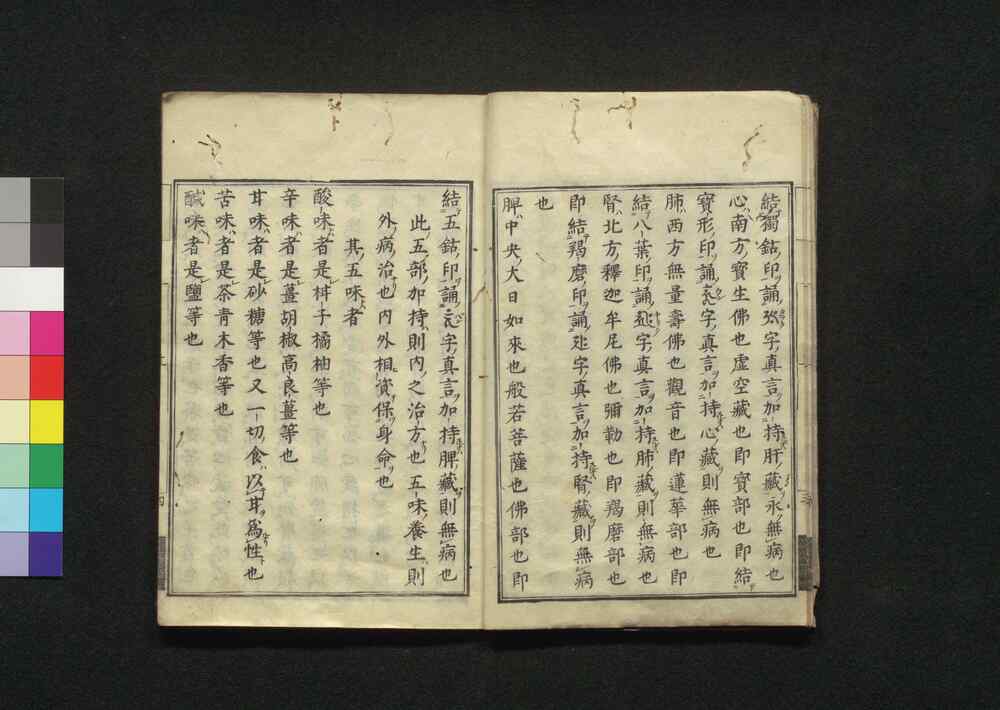 結獨鈷印誦字真言加持肝藏永無病也
心南方寶生佛也虛空藏也即寶部也即結
寶形印誦字真言加持心藏則無病也
肺西方無量壽佛也觀音也即蓮華部也即
結八葉印誦字真言加持肺藏則無病也
腎北方釋迦牟尼佛也彌勒也即羯磨部也
即結羯磨印誦字真言加持腎藏則無病
也
脾中央大日如來也般若菩薩也佛部也即
結五鈷印誦字真言加持脾藏則無病也
此五部加持則內之治方也五味養生則
外病治也內外相資保身命也
其五味者
酸味者是柑子橘柚等也
辛味者是薑胡椒高良薑等也
甘味者是砂糖等也又一切食以甘爲性也
苦味者是茶青木香等也
鹹味者是鹽等也